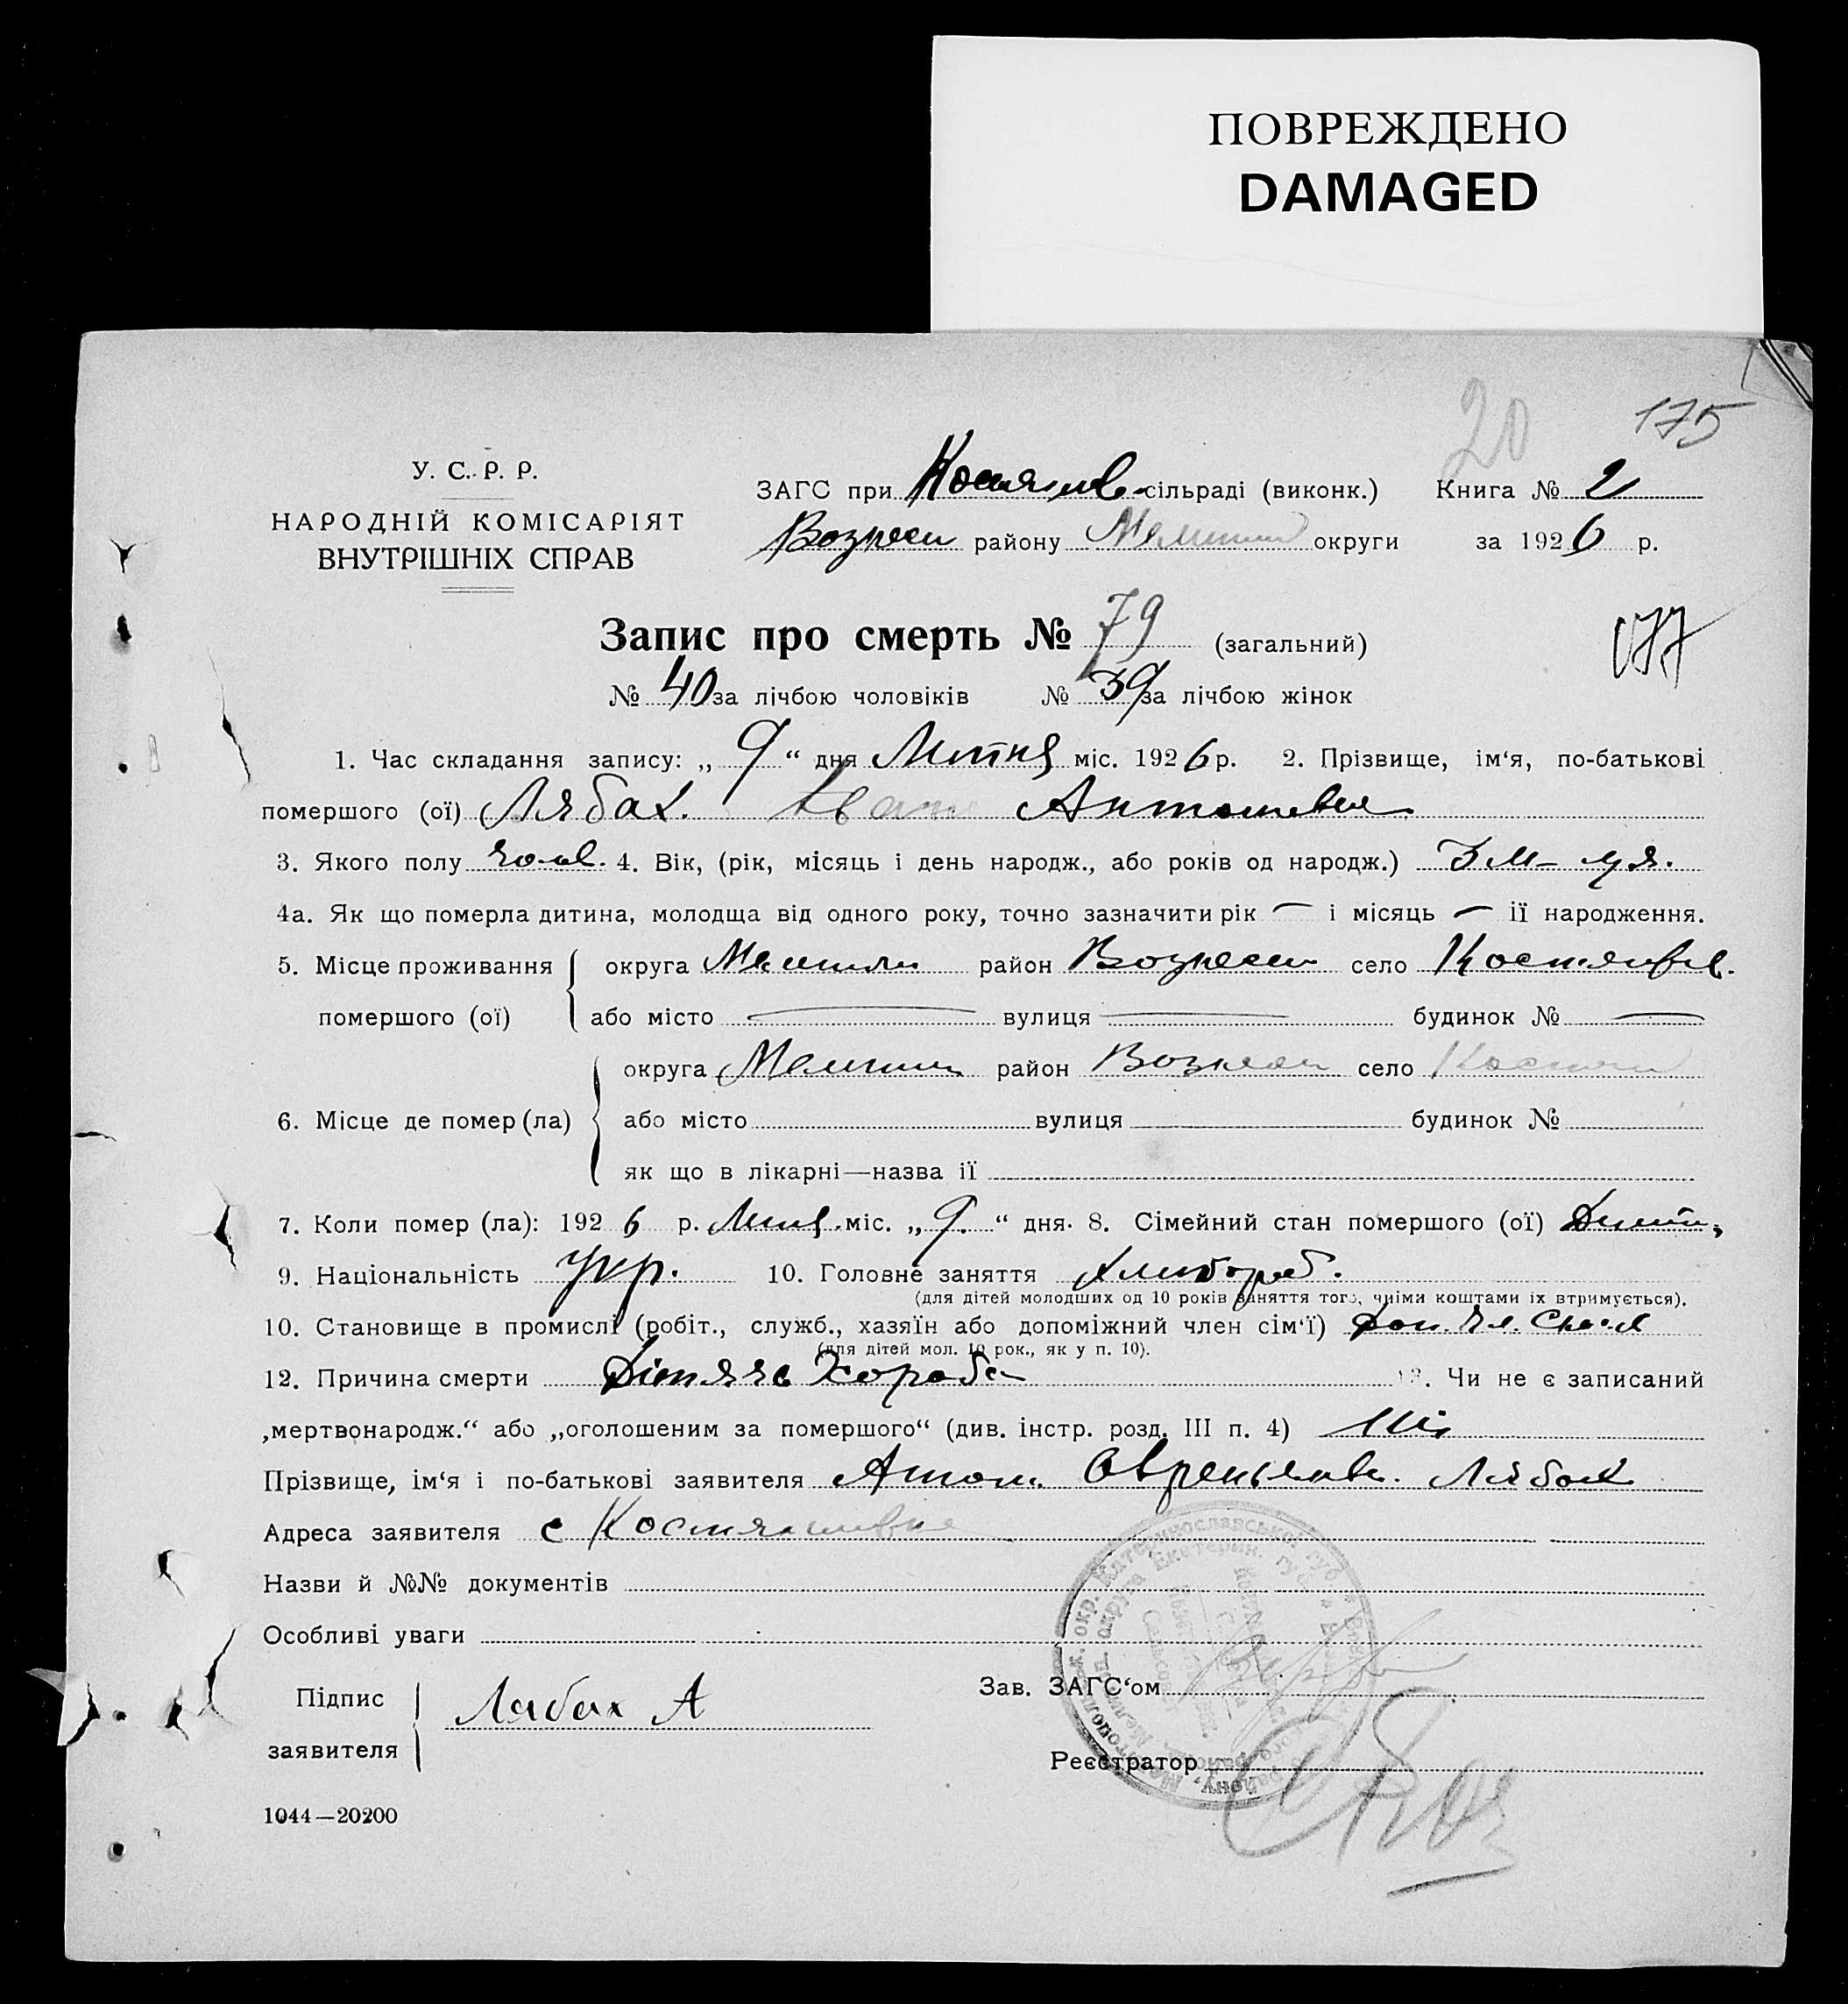 ПОВРЕЖДЕНО
DAMAGED
20 175
У. С. Р. Р.
НАРОДНІЙ КОМІСАРІЯТ
ВНУТРІШНІХ СПРАВ
ЗАГС при сільраді (виконк.) Книга № 2
Вознесен району Мелитоп округи за 1926 р.
Запис про смерть № 79 (загальний)
177
№ 40 за лічбою чоловіків № 39 за лічбою жінок
1. Час складання запису: „ 9 “ дня Липня міс. 1926 р. 2. Прізвище, ім‘я, по-батькові
помершого (ої) Лябах. Іван Антонович
3. Якого полу чолов. 4. Вік, (рік, місяць і день народж., або років од народж.) 3 м-ця.
4а. Як що померла дитина, молодща від одного року, точно зазначити рік — і місяць — ії народження.
5. Місце проживання помершого (ої) округа Мелитоп район Вознесен село Костянтів.
або місто — вулиця — будинок № —
6. Місце де помер (ла) округа Мелитоп район Вознесен село Костян
або місто вулиця будинок №
як що в лікарні—назва ії
7. Коли помер (ла): 1926 р. Липня міс. „ 9. “ дня. 8. Сімейний стан помершого (ої)
9. Національність Укр. 10. Головне заняття Хлібороб.
(для дітей молодших од 10 років заняття того, чиїми коштами їх втримується).
10. Становище в промислі (робіт., служб., хазяїн або допоміжний член сім‘ї) Доп. чл. Сем‘ї
(для дітей мол. 10 рок., як у п. 10).
12. Причина смерти Дітяча Хороба 13. Чи не є записаний
„мертвонародж.“ або „оголошеним за помершого“ (див. інстр. розд. III п. 4) Ні
Прізвище, ім‘я і по-батькові заявителя Антон Лябах
Адреса заявителя с Костянтинівка
Назви й №№ документів
Особливі уваги
Підпис заявителя Лябах А
Зав. ЗАГС‘ом
Реєстратор
1044—20200